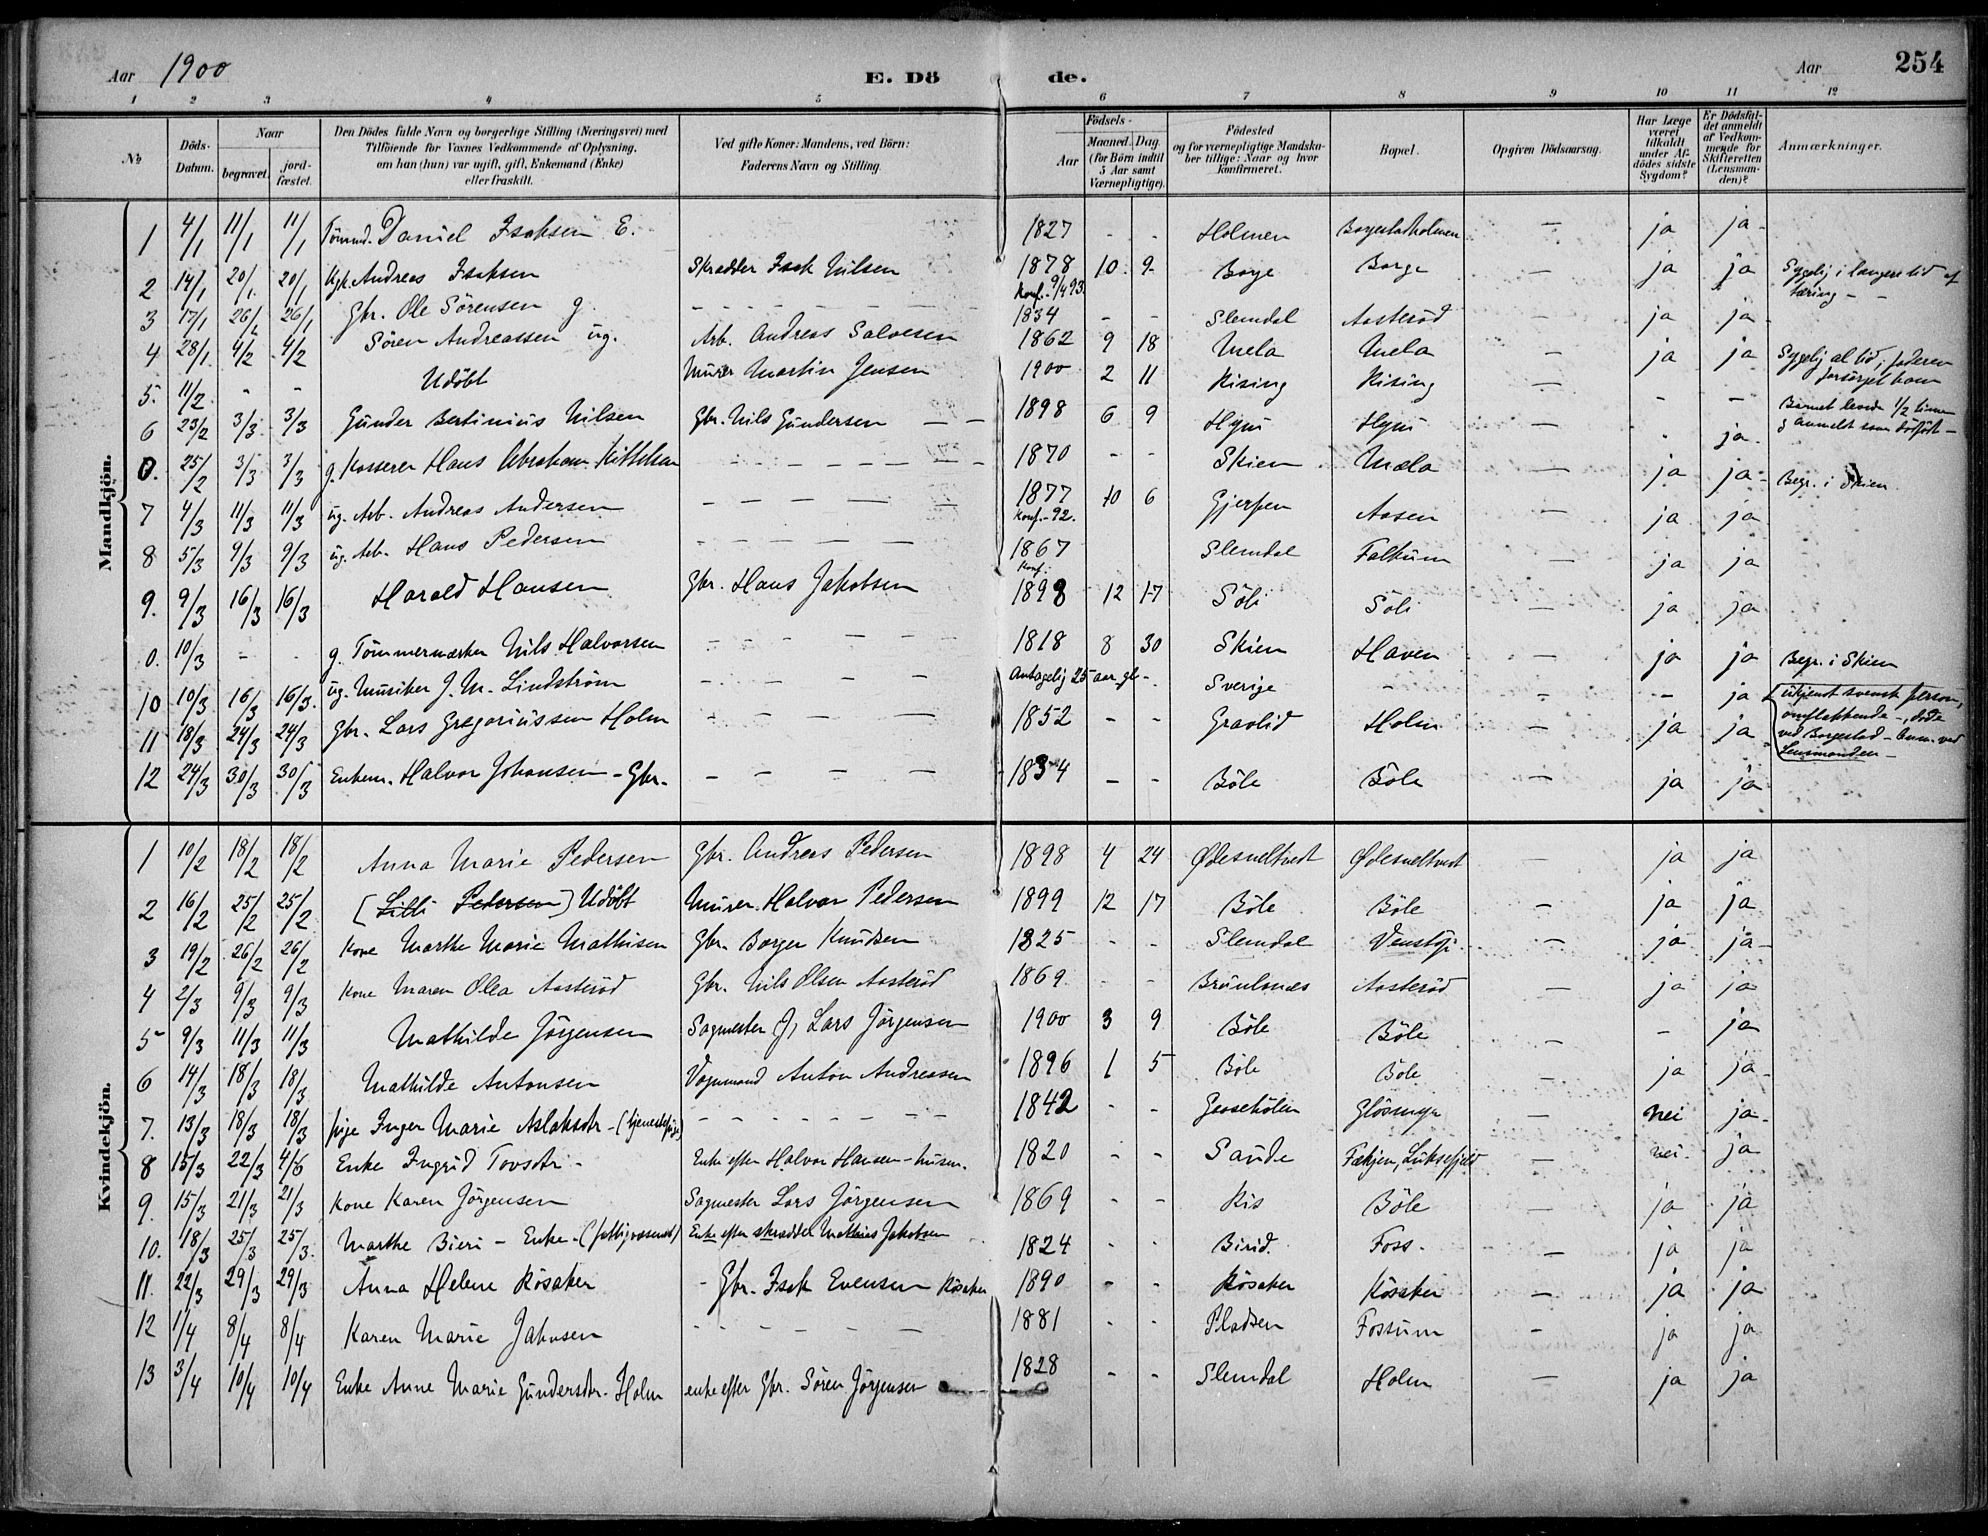 Aar 1900 E. Dö de. Aar 254
1 2 3 4 5 6 7 8 9 10 11 12
No Döds-Datum. Naar begravet. jordfæstet. Den Dödes fulde Navn og borgerlige Stilling (Næringsvei) med Tilföiende for Voxnes Vedkommende af Oplysning, om han (hun) var ugift, gift, Enkemand (Enke) eller fraskilt. Ved gifte Koner: Mandens, ved Börn: Faderens Navn og Stilling. Födsels- Aar Maaned. Dag. (for Börn indtil 5 Aar samt Værnepligtige). Födested og for værnepligtige Mandskaber tillige: Naar og hvor konfirmeret. Bopæl. Opgiven Dödsaarsag. Har Læge været tilkaldt under Afdödes sidste Sygdom? Er Dödsfaldet anmeldt af Vedkommende for Skifteretten (Lensmanden)? Anmærkninger.
Mandkjön.
1 4/1 11/1 11/1 Tömmd. Daniel Isaksen E. - - - 1827 - - Holmen Borgestadholmen - ja ja
2 14/1 20/1 20/1 Ugk. Andreas Isaksen Skrædder Isak Nilsen 1878 10 9 Borge Borge - ja ja Sygelig i længere tid af tæring -
Konf. 9/4 93.
3 17/1 26/1 26/1 Gbr. Ole Sörensen g. - - - 1834 - - Slemdal Aasteröd ja ja
4 28/1 4/2 4/2 Sören Andreassen ug. Arb. Andreas Salvesen 1862 9 18 Mela Mela - ja ja Sygelig al tid, faderen forsörget ham
5. 11/2 - - Udöbt Murer Martin Jensen 1900 2 11 Rising Rising - - - Barnet levede 1/2 time & anmeldt som dödfödt -
6 23/2 3/3 3/3 Gunder Bertinius Nilsen Gbr. Nils Gundersen 1898 6 9 Hyni Hyni - - ja
0. 25/2 3/3 3/3 g. Kasserer Hans Abraham Kittelsen - - - 1870 - - Skien Mæla - ja ja Begr. i Skien
7 4/3 11/3 11/3 ug. Arb. Andreas Andersen - - - 1877 10 6 Gjerpen Aasen - ja ja
Konf. - 92.
8 5/3 9/3 9/3 ug. Arb. Hans Pedersen - - - 1867 Slemdal Falkum ja ja
Konf.
9. 9/3 16/3 16/3 Harald Hansen Gbr. Hans Jakobsen 1898 12 17 Söli Söli - ja ja
0. 10/3 - - g. Tömmermærker Nils Halvorsen - - - 1818 8 30 Skien Haven - ja ja Begr. i Skien
10 10/3 16/3 16/3. ug. Musiker J. M. Lindström - - - Antagelig 25 aar gl - Sverige - - - ja ukjent svensk person, omflakkende -, döde ved Borgestad - Anm. ved Lensmanden -
11 18/3 24/3 24/3 Gbr. Lars Gregoriussen Holm - - - 1852 - - Gravlid Holm - ja ja
12 24/3 30/3 30/3 Enkem. Halvor Johansen - Gbr. - - - 1834 - - Böle Böle - ja ja
Kvindekjön.
1 10/2 18/2 18/2 Anna Marie Pedersen Gbr. Andreas Pedersen 1898 4 24 Ødesneltvedt Ødesneltvedt - ja ja
2 16/2 25/2 25/2 (Lilli Pedersen) Udöbt Murer Halvor Pedersen 1899 12 17 Böle Böle - ja ja
3 19/2 26/2 26/2 Kone Marthe Marie Mathisen Gbr. Borger Knudsen 1825 - - Slemdal Venstöp. - ja ja
4 2/3 9/3 9/3 Kone Maren Olea Aasteröd Gbr. Nils Olsen Aasteröd 1869. - - Brunlanæs Aasteröd - ja ja
5 9/3 11/3 11/3 Mathilde Jörgensen Sagmester Lars Jörgensen 1900 3 9 Böle Böle - ja
6 14/3 18/3 18/3 Mathilde Antonsen Vognmand Anton Andreasen 1896 1 5 Böle Böle - ja ja
7. 13/3 18/3 18/3 pige Inger Marie Aslaksdtr - (tjenestepige) - - - 1842 - - Gaaseholm Glösmyr - nei ja
8 15/3 22/3 4/6 Enke Ingrid Tovsdtr - Enke efter Halvor Hansen - husm. 1820 - - Sande Fækjen, Luksefjeld - nei. ja
9. 15/3 21/3 21/3 Kone Karen Jörgensen Sagmester Lars Jörgensen 1869 - - Ris Böle ja ja
10. 18/3 25/3 25/3. Marthe Bieri - Enke - (fattigvæsenet) Enke efter skrædder Mathias Jakobsen 1824 - - Birid. Foss. - ja ja
11. 22/3 29/3 29/3 Anna Helene Rösaker - Gbr. Isak Evensen Rösaker 1890 - - Rösaker Rösaker - ja ja
12 1/4 8/4 8/4 Karen Marie Jahnsen - - - 1881 - - Pladsen Fossum - ja ja
13 3/4 10/4 10/4 Enke Anne Marie Gundersdtr. Holm enke efter Gbr. Sören Jörgensen 1828 - - Slemdal Holm - ja ja